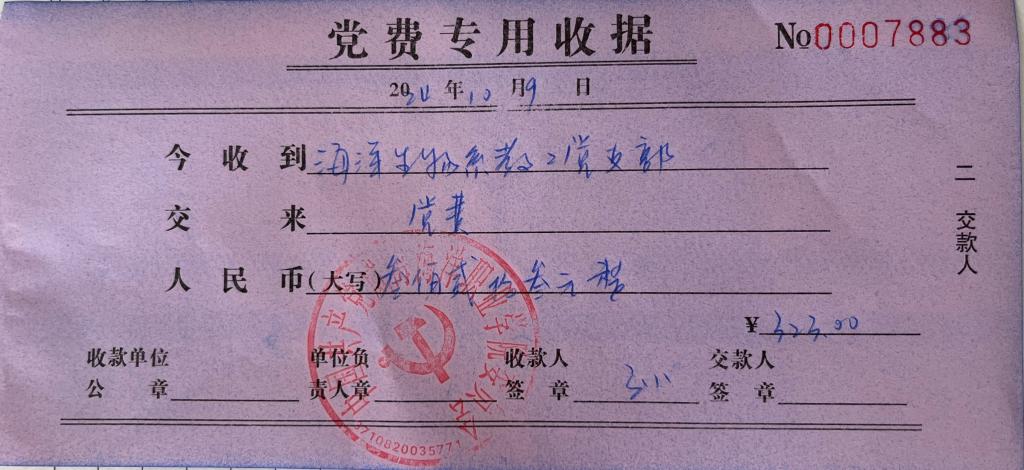 党费专用收据
№0007883
2024年10月9日
今收到海洋生物系教工党支部
交来党费
人民币(大写)叁佰贰拾叁元整
¥323.00
二 交款人
收款单位公章
单位负责人章
收款人签章
交款人签章
3710820035771